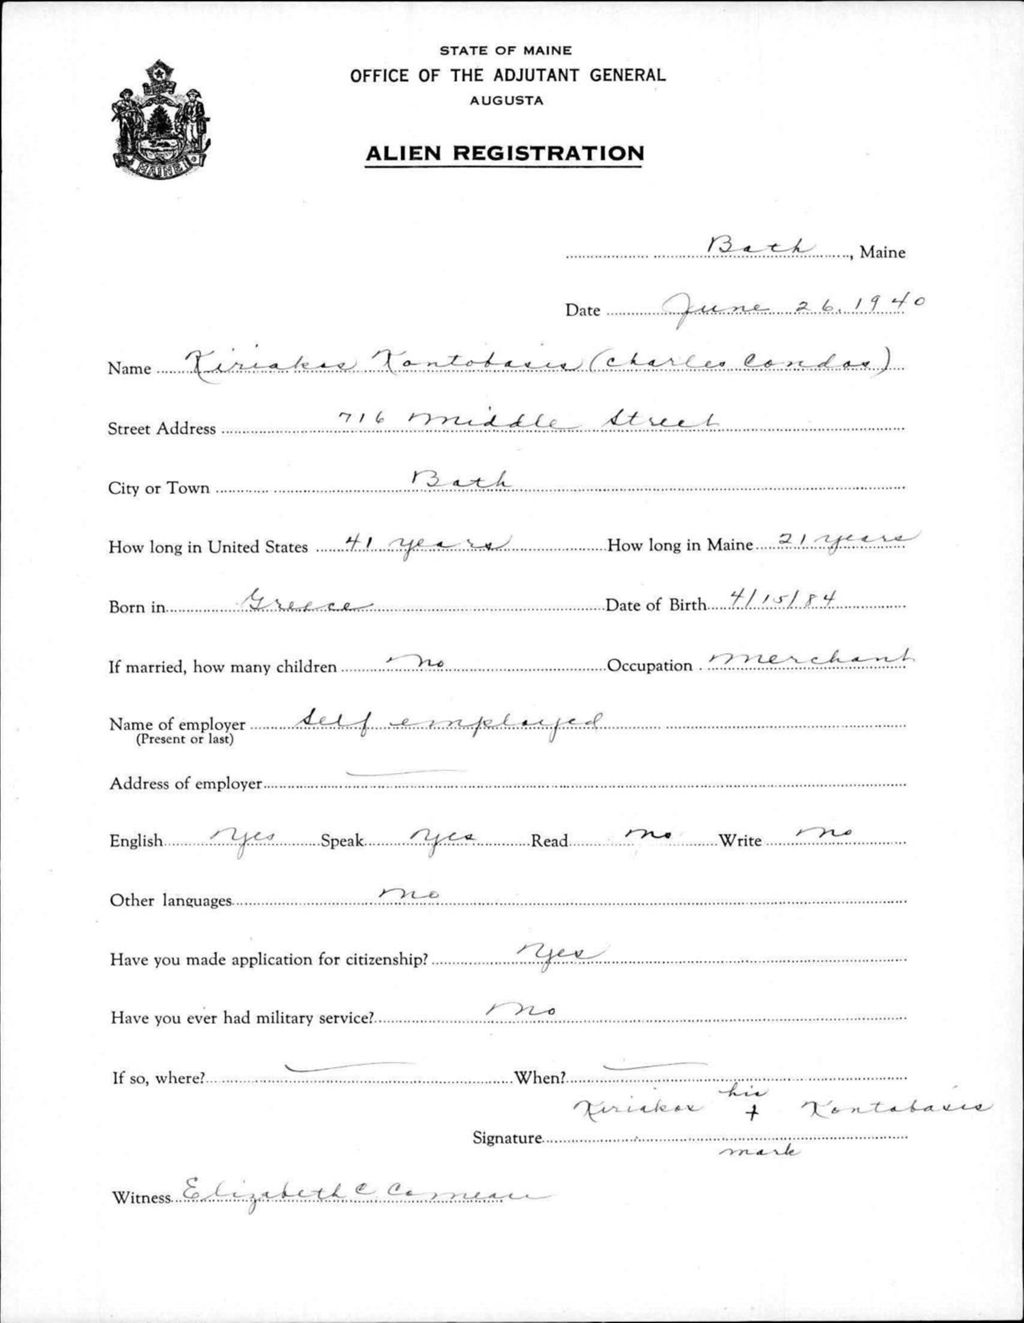 STATE OF MAINE
OFFICE OF THE ADJUTANT GENERAL
AUGUSTA
ALIEN REGISTRATION
MAINE
Bath, Maine
Date June 26, 1940
Name Kiriakos Kontobasis (Charles Condos)
Street Address 716 Middle Street
City or Town Bath
How long in United States 41 years How long in Maine 21 years
Born in Greece Date of Birth 4/15/84
If married, how many children No Occupation Merchant
Name of employer Self employed
(Present or last)
Address of employer —
English Yes Speak Yes Read No Write No
Other languages No
Have you made application for citizenship? Yes
Have you ever had military service? No
If so, where? — When? —
his
Kiriakos + Kontabasis
Signature
mark
Witness Elizabeth C Comeau